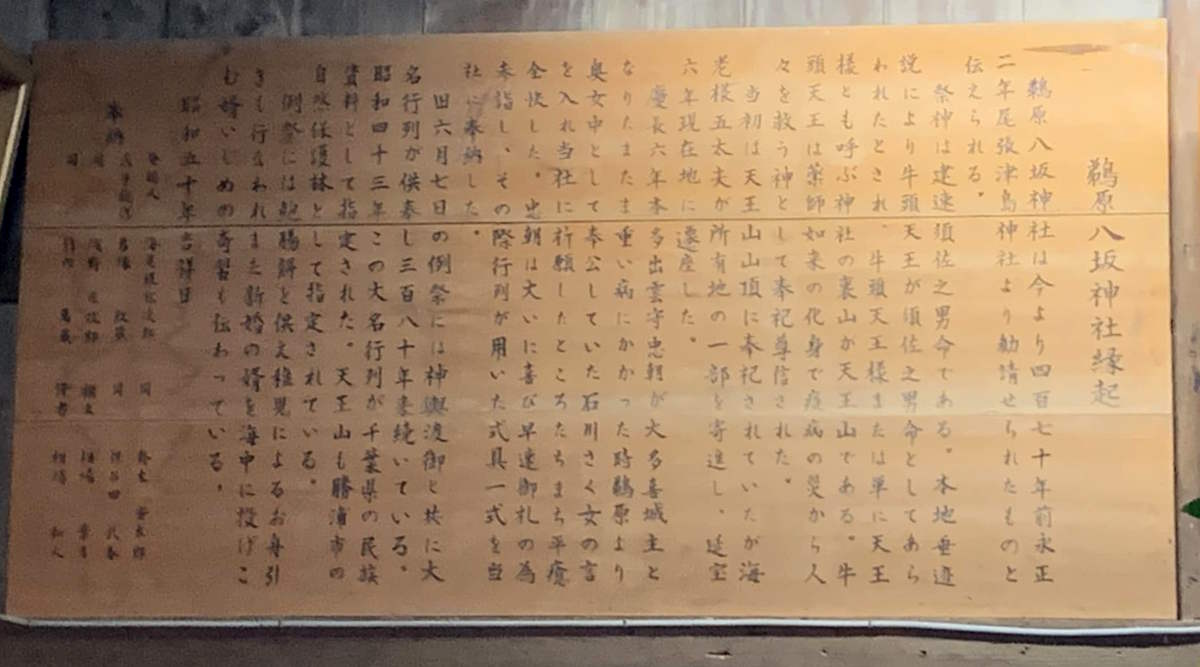 鵜原八坂神社縁起
鵜原八坂神社は今より四百七十年前永正
二年尾張津島神社より勧請せられたものと
伝えられる。
祭神は建速須佐之男命である。本地垂迹
説により牛頭天王が須佐之男命としてあら
われたとされ、牛頭天王様または単に天王
様とも呼ぶ神社の裏山が天王山である。牛
頭天王は薬師如来の化身で疫病の災から人
々を救う神として奉祀尊信された。
当初は天王山山頂に奉祀されていたが海
老様五太夫が所有地の一部を寄進し、延宝
六年現在地に遷座した。
慶長六年本多出雲守忠朝が大多喜城主と
なりたまたま重い病にかかった時鵜原より
奥女中として奉公していた石川さく女の言
を入れ当社に祈願したところたちまち平癒
全快した。忠朝は大いに喜び早速御礼の為
参詣し、その際行列が用いた式具一式を当
社に奉納した。
旧六月七日の例祭には神輿渡御と共に大
名行列が供奉し三百八十年来続いている。
昭和四十三年この大名行列が千葉県の民族
資料として指定された。天王山も勝浦市の
自然保護林として指定されている。
例祭には鮑腸餅と供文稚児によるお舟引
きも行なわれまた新婚の婿を海中に投げこ
む婿いじめの奇習も伝わっている。
昭和五十年吉祥日
奉納